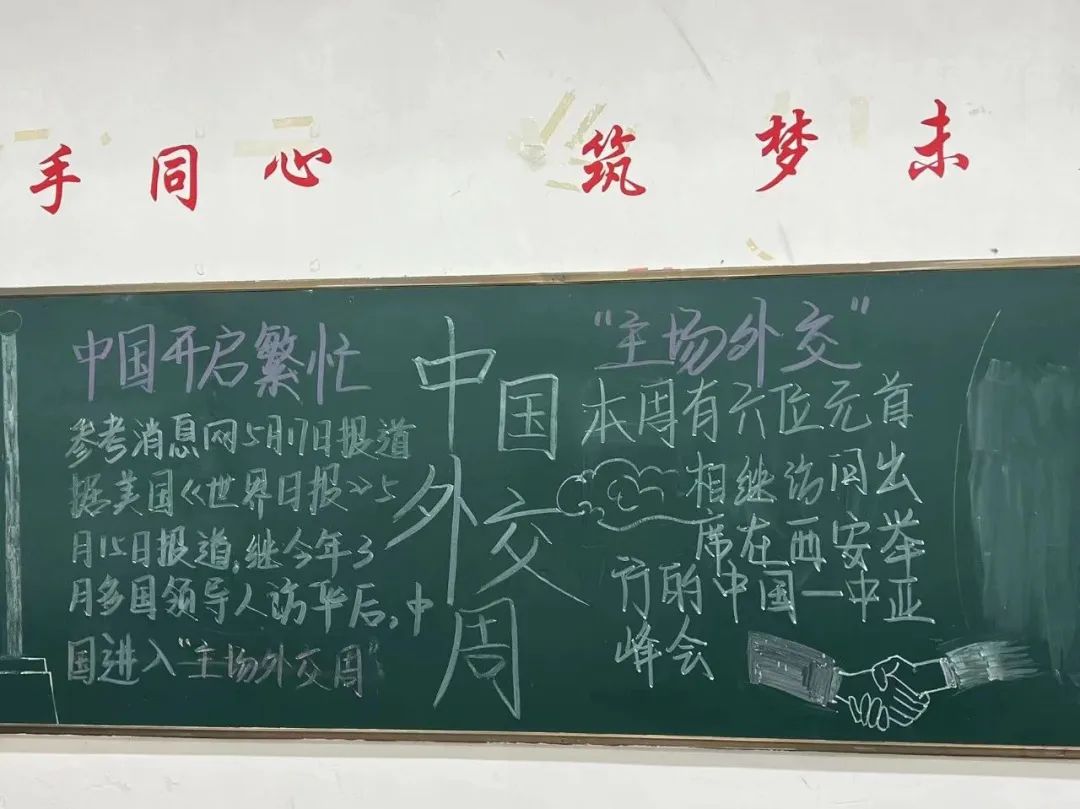 手同心 筑梦未
中国开启繁忙
参考消息网5月17日报道
据美国《世界日报》5
月15日报道,继今年3
月多国领导人访华后,中
国进入"主场外交周"
中国
外交
周
"主场外交"
本周有六位元首
相继访问出
席在西安举
行的中国一中亚
峰会